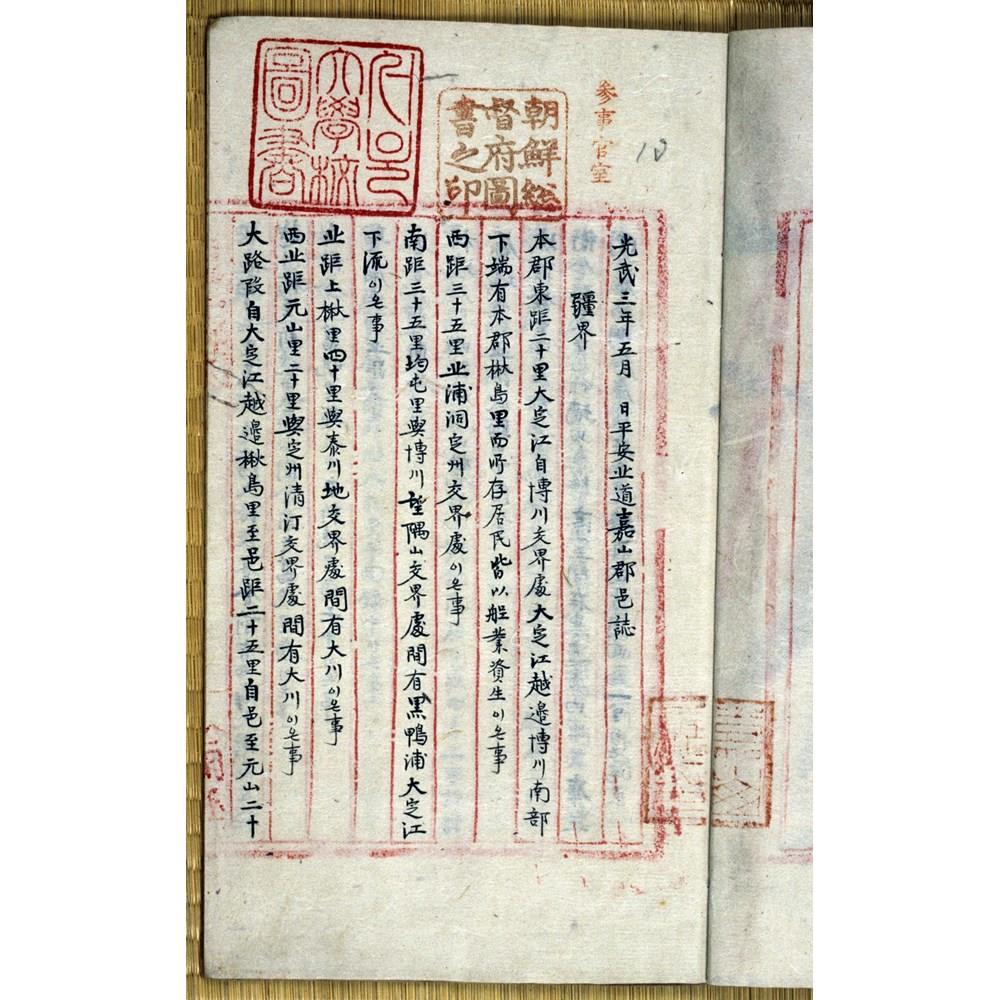 參事官室
10
朝鮮總
督府圖
書之印
서울
大學校
圖書
光武三年五月 日平安北道嘉山郡邑誌
疆界
本郡東距二十里大定江自博川交界處大定江越邊博川南部
下端有本郡楸島里而所存居民皆以船業資生이온事
西距三十五里北浦洞定州交界處이온事
南距三十五里均屯里與博川望隅山交界處間有黑鴨浦大定江
下流이온事
北距上楸里四十里與泰川地交界處間有大川이온事
西北距元山里二十里與定州清汀交界處間有大川이온事
大路段自大定江越邊楸島里至邑距二十五里自邑至元山二十